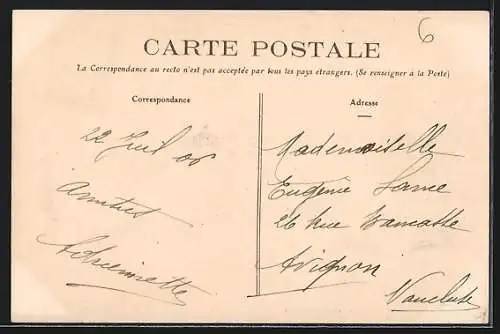 6
CARTE POSTALE
La Correspondance au recto n'est pas acceptée par tous les pays étrangers. (Se renseigner à la Poste)
Correspondance
Adresse
22 Juil 06
Amitiés
Mademoiselle
Eugénie
26 Rue
Avignon
Vaucluse